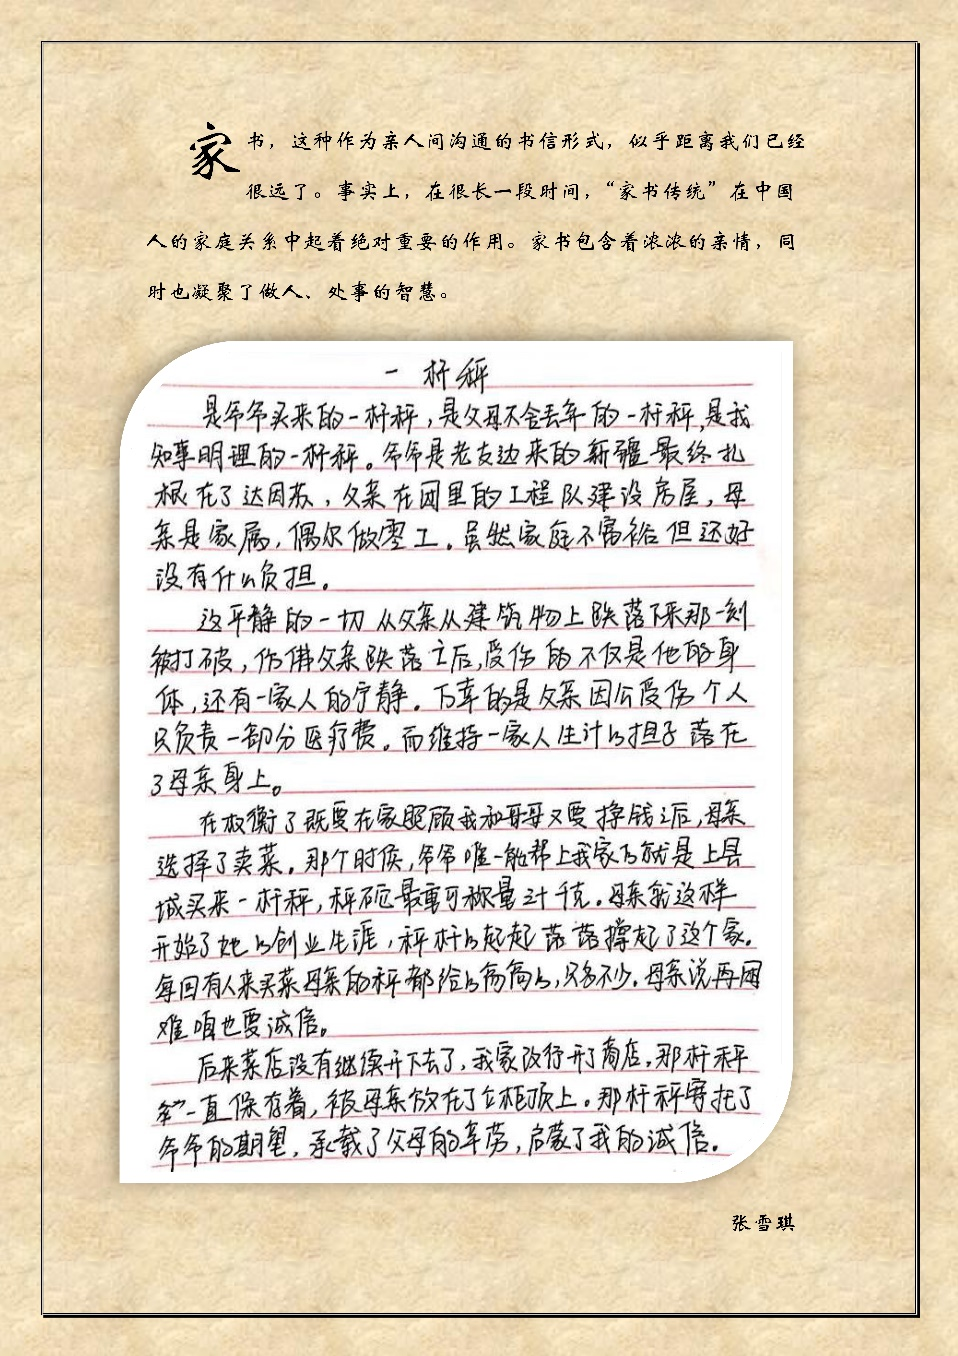 家书，这种作为亲人间沟通的书信形式，似乎距离我们已经
很远了。事实上，在很长一段时间，“家书传统”在中国
人的家庭关系中起着绝对重要的作用。家书包含着浓浓的亲情，同
时也凝聚了做人、处事的智慧。
一杆秤
是爷爷买来的一杆秤，是父母不舍丢弃的一杆秤，是我
知事明理的一杆秤。爷爷是老支边来的新疆最终扎
根在了达因苏，父亲在团里的工程队建设房屋，母
亲是家属，偶尔做零工。虽然家庭不富裕但还好
没有什么负担。
这平静的一切从父亲从建筑物上跌落下来那一刻
被打破，仿佛父亲跌落之后，受伤的不仅是他的身
体，还有一家人的宁静。万幸的是父亲因公受伤个人
只负责一部分医疗费。而维持一家人生计的担子落在
了母亲身上。
在权衡了既要在家照顾我和哥哥又要挣钱之后，母亲
选择了卖菜。那个时候，爷爷唯一能帮上我家的就是上县
城买来一杆秤，秤砣最重可称量三十千克。母亲就这样
开始了她的创业生涯，秤杆的起起落落撑起了这个家。
每回有人来买菜母亲的秤都给的高高的，只多不少。母亲说再困
难咱也要诚信。
后来菜店没有继续开下去了，我家改行开了商店，那杆秤
一直保存着，被母亲放在了立柜顶上。那杆秤寄托了
爷爷的期望，承载了父母的辛劳，启蒙了我的诚信。
张雪琪